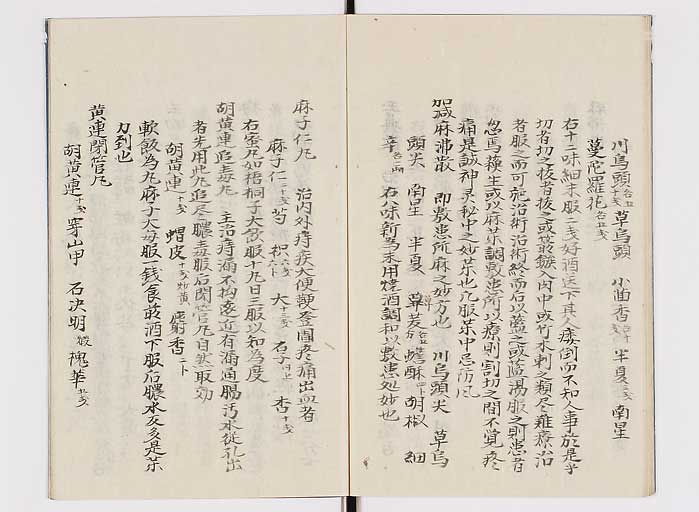 川烏頭 各五戔 草烏頭 小茴香 半夏 南星
蔓陀羅花 各五戔
右十二味細末服二戔好酒送下其人痿倒而不知人事於是乎
切者切之抜者抜之或箭鏃入肉中或竹木刺之類尽難療治
者服之而可施治術治術終而后以塩之或塩湯服之則患者
忽焉穌生或以麻茶調敷患所以療則割切之間不覚疼
痛是誠神灵秘中之妙茶也凡服茶中忌
加減麻沸散 即敷患所麻之妙方也 川烏頭尖 草烏
頭尖 南星 半夏 蓽茇 蟾酥 胡椒 細
辛 右八味新為末用焼酒調和以敷患処妙也
麻子仁凡 治内外痔疾大便鞕登圊疼痛出血者
麻子仁 芍 枳 大 杏
右蜜凡如梧桐子大飲服十凡日三服以知為度
胡黄連追毒凡 主治痔漏不拘遠近有漏通腸汚水従孔出
者先用此凡追尽膿毒服后閉管凡自然取効
胡黄連 十戔 蝟皮 十戔炒黄 麝香 二卜
軟飯為凡麻子大毎服一銭食前酒下服后膿水反多是茶
力到也
黄連閉管凡
胡黄連 十戔 穿山甲 石決明 煅 槐華 五戔